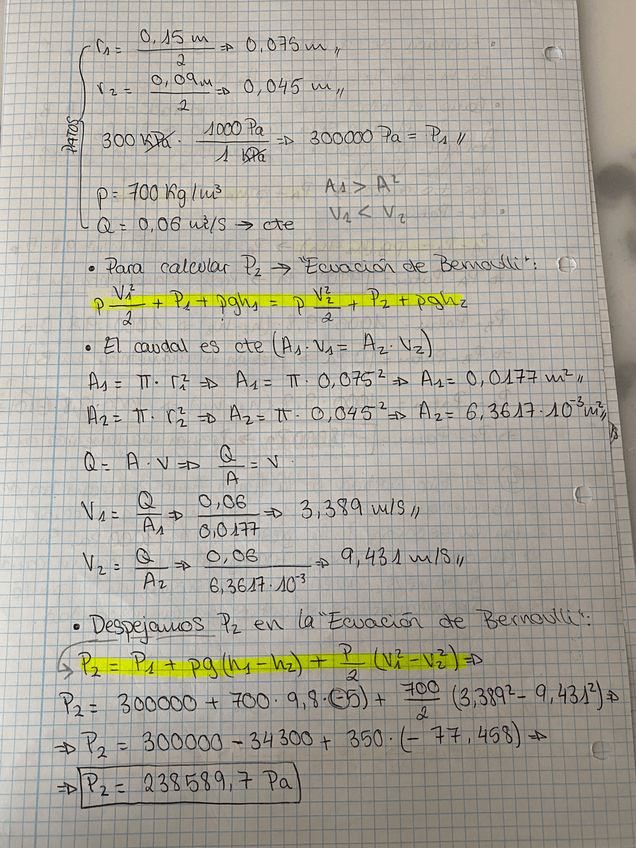 DATOS
r₁ = 0,15 m / 2 ⇒ 0,075 m //
r₂ = 0,09 m / 2 ⇒ 0,045 m //
300 KPa · 1000 Pa / 1 KPa ⇒ 300000 Pa = P₁ //
ρ = 700 Kg/m³ A₁ > A²
Q = 0,06 m³/S → cte V₁ < V₂
• Para calcular P₂ → "Ecuación de Bernoulli":
ρ V₁²/2 + P₁ + ρgh₁ = ρ V₂²/2 + P₂ + ρgh₂
• El caudal es cte (A₁ · V₁ = A₂ · V₂)
A₁ = π · r₁² ⇒ A₁ = π · 0,075² ⇒ A₁ = 0,0177 m² //
A₂ = π · r₂² ⇒ A₂ = π · 0,045² ⇒ A₂ = 6,3617 · 10⁻³ m² //
Q = A · v ⇒ Q/A = v
V₁ = Q/A₁ ⇒ 0,06 / 0,0177 ⇒ 3,389 m/S //
V₂ = Q/A₂ ⇒ 0,06 / 6,3617 · 10⁻³ ⇒ 9,431 m/S //
• Despejamos P₂ en la "Ecuación de Bernoulli":
P₂ = P₁ + ρg(h₁ - h₂) + ρ/2 (v₁² - v₂²) ⇒
P₂ = 300000 + 700 · 9,8 · (-5) + 700/2 (3,389² - 9,431²) ⇒
⇒ P₂ = 300000 - 34300 + 350 · (- 77,458) ⇒
⇒ P₂ = 238589,7 Pa